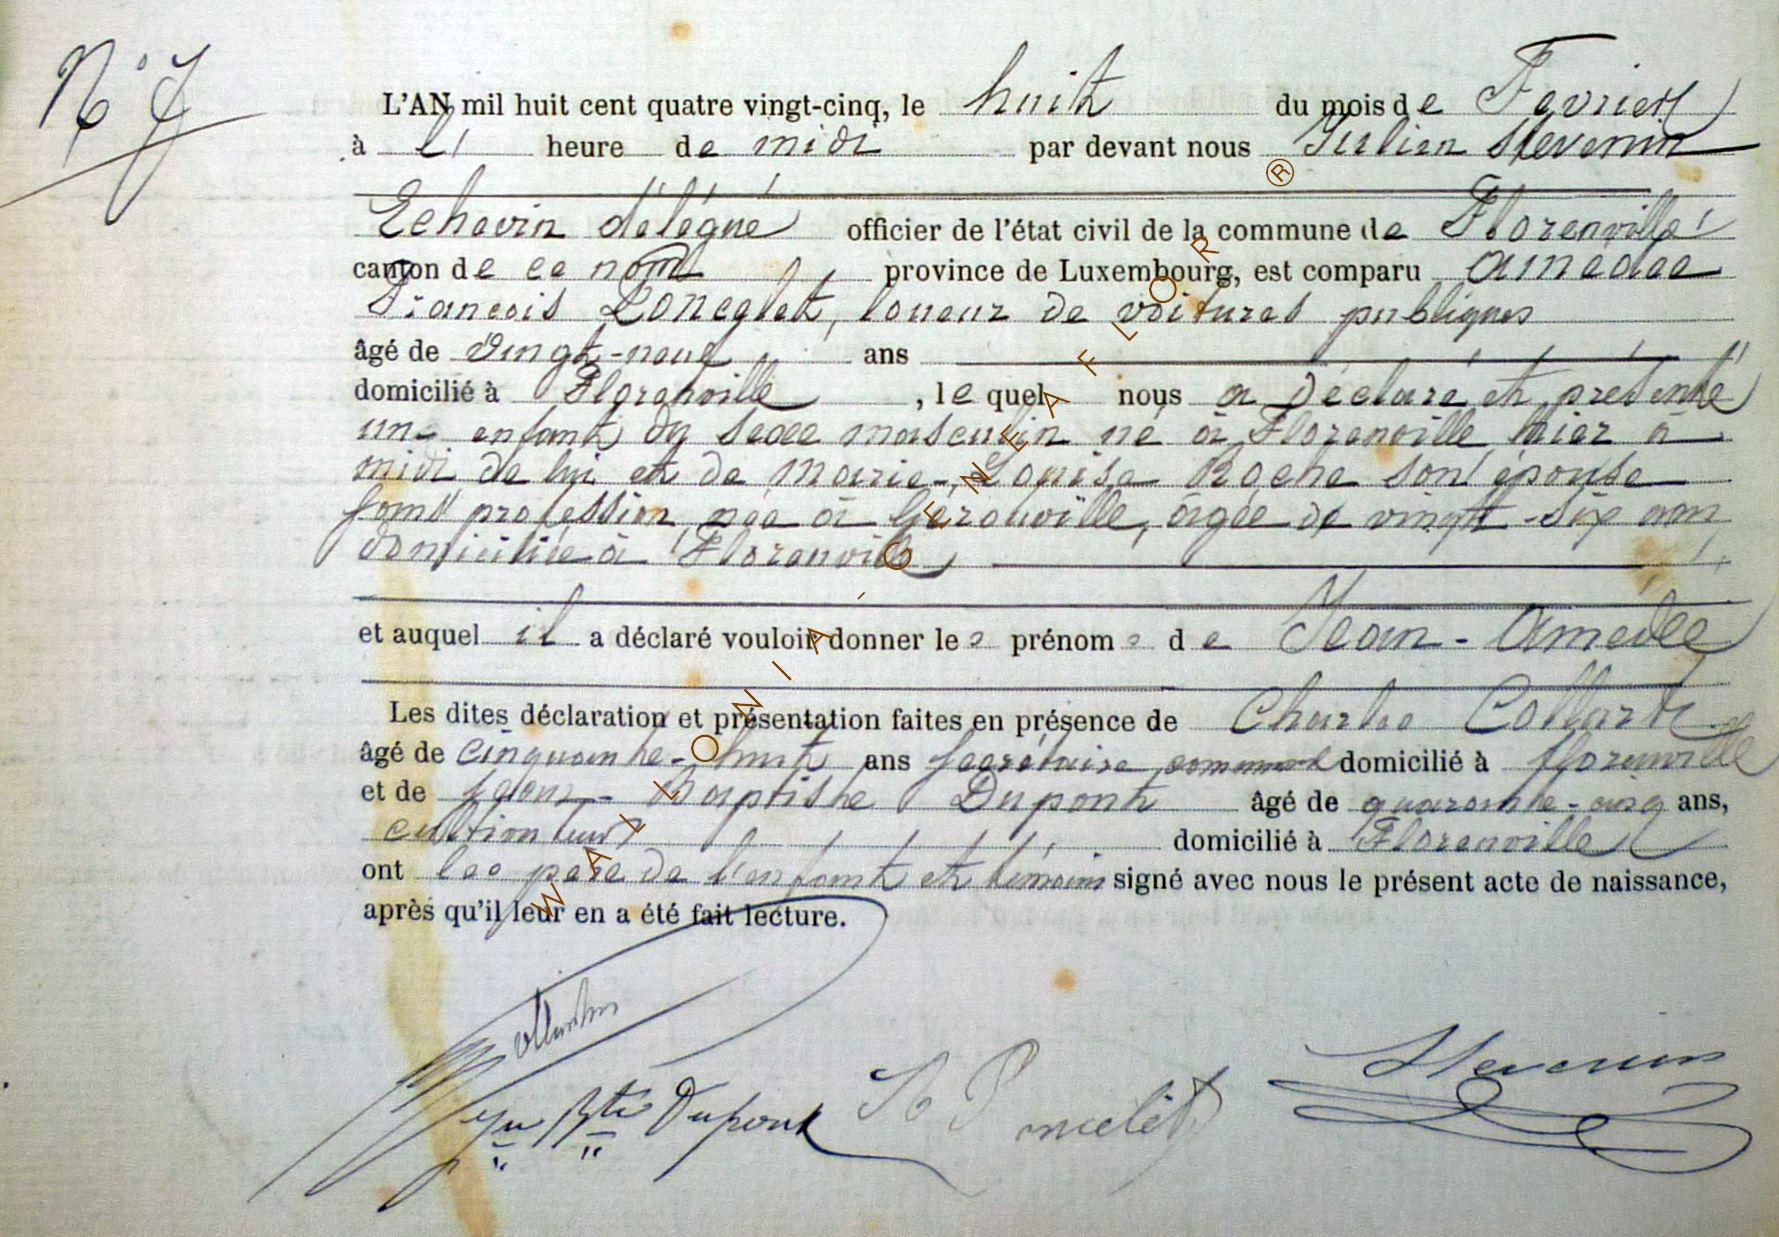 N° 7
L'AN mil huit cent quatre vingt-cinq, le huit du mois de Février
à l' heure de midi par devant nous Julien Stevenin
Echevin délégué officier de l'état civil de la commune de Florenville
canton de ce nom province de Luxembourg, est comparu Amédée
François Poncelet, loueur de voitures publiques
âgé de vingt-neuf ans
domicilié à Florenville, lequel nous a déclaré et présenté
un enfant du sexe masculin né à Florenville hier à
midi de lui et de Marie-Louise Roche son épouse
sans profession née à Gérouville, âgée de vingt-six ans
domiciliée à Florenville
et auquel il a déclaré vouloir donner les prénoms de Jean-Amédée
Les dites déclaration et présentation faites en présence de Charles Collart
âgé de cinquante-huit ans secrétaire communal domicilié à Florenville
et de Jean-Baptiste Dupont âgé de quarante-cinq ans,
cultivateur domicilié à Florenville
ont les père de l'enfant et témoins signé avec nous le présent acte de naissance,
après qu'il leur en a été fait lecture.
Jn Bte Dupont
Poncelet
Stevenin
WALLONIA-GENEAFLOR®